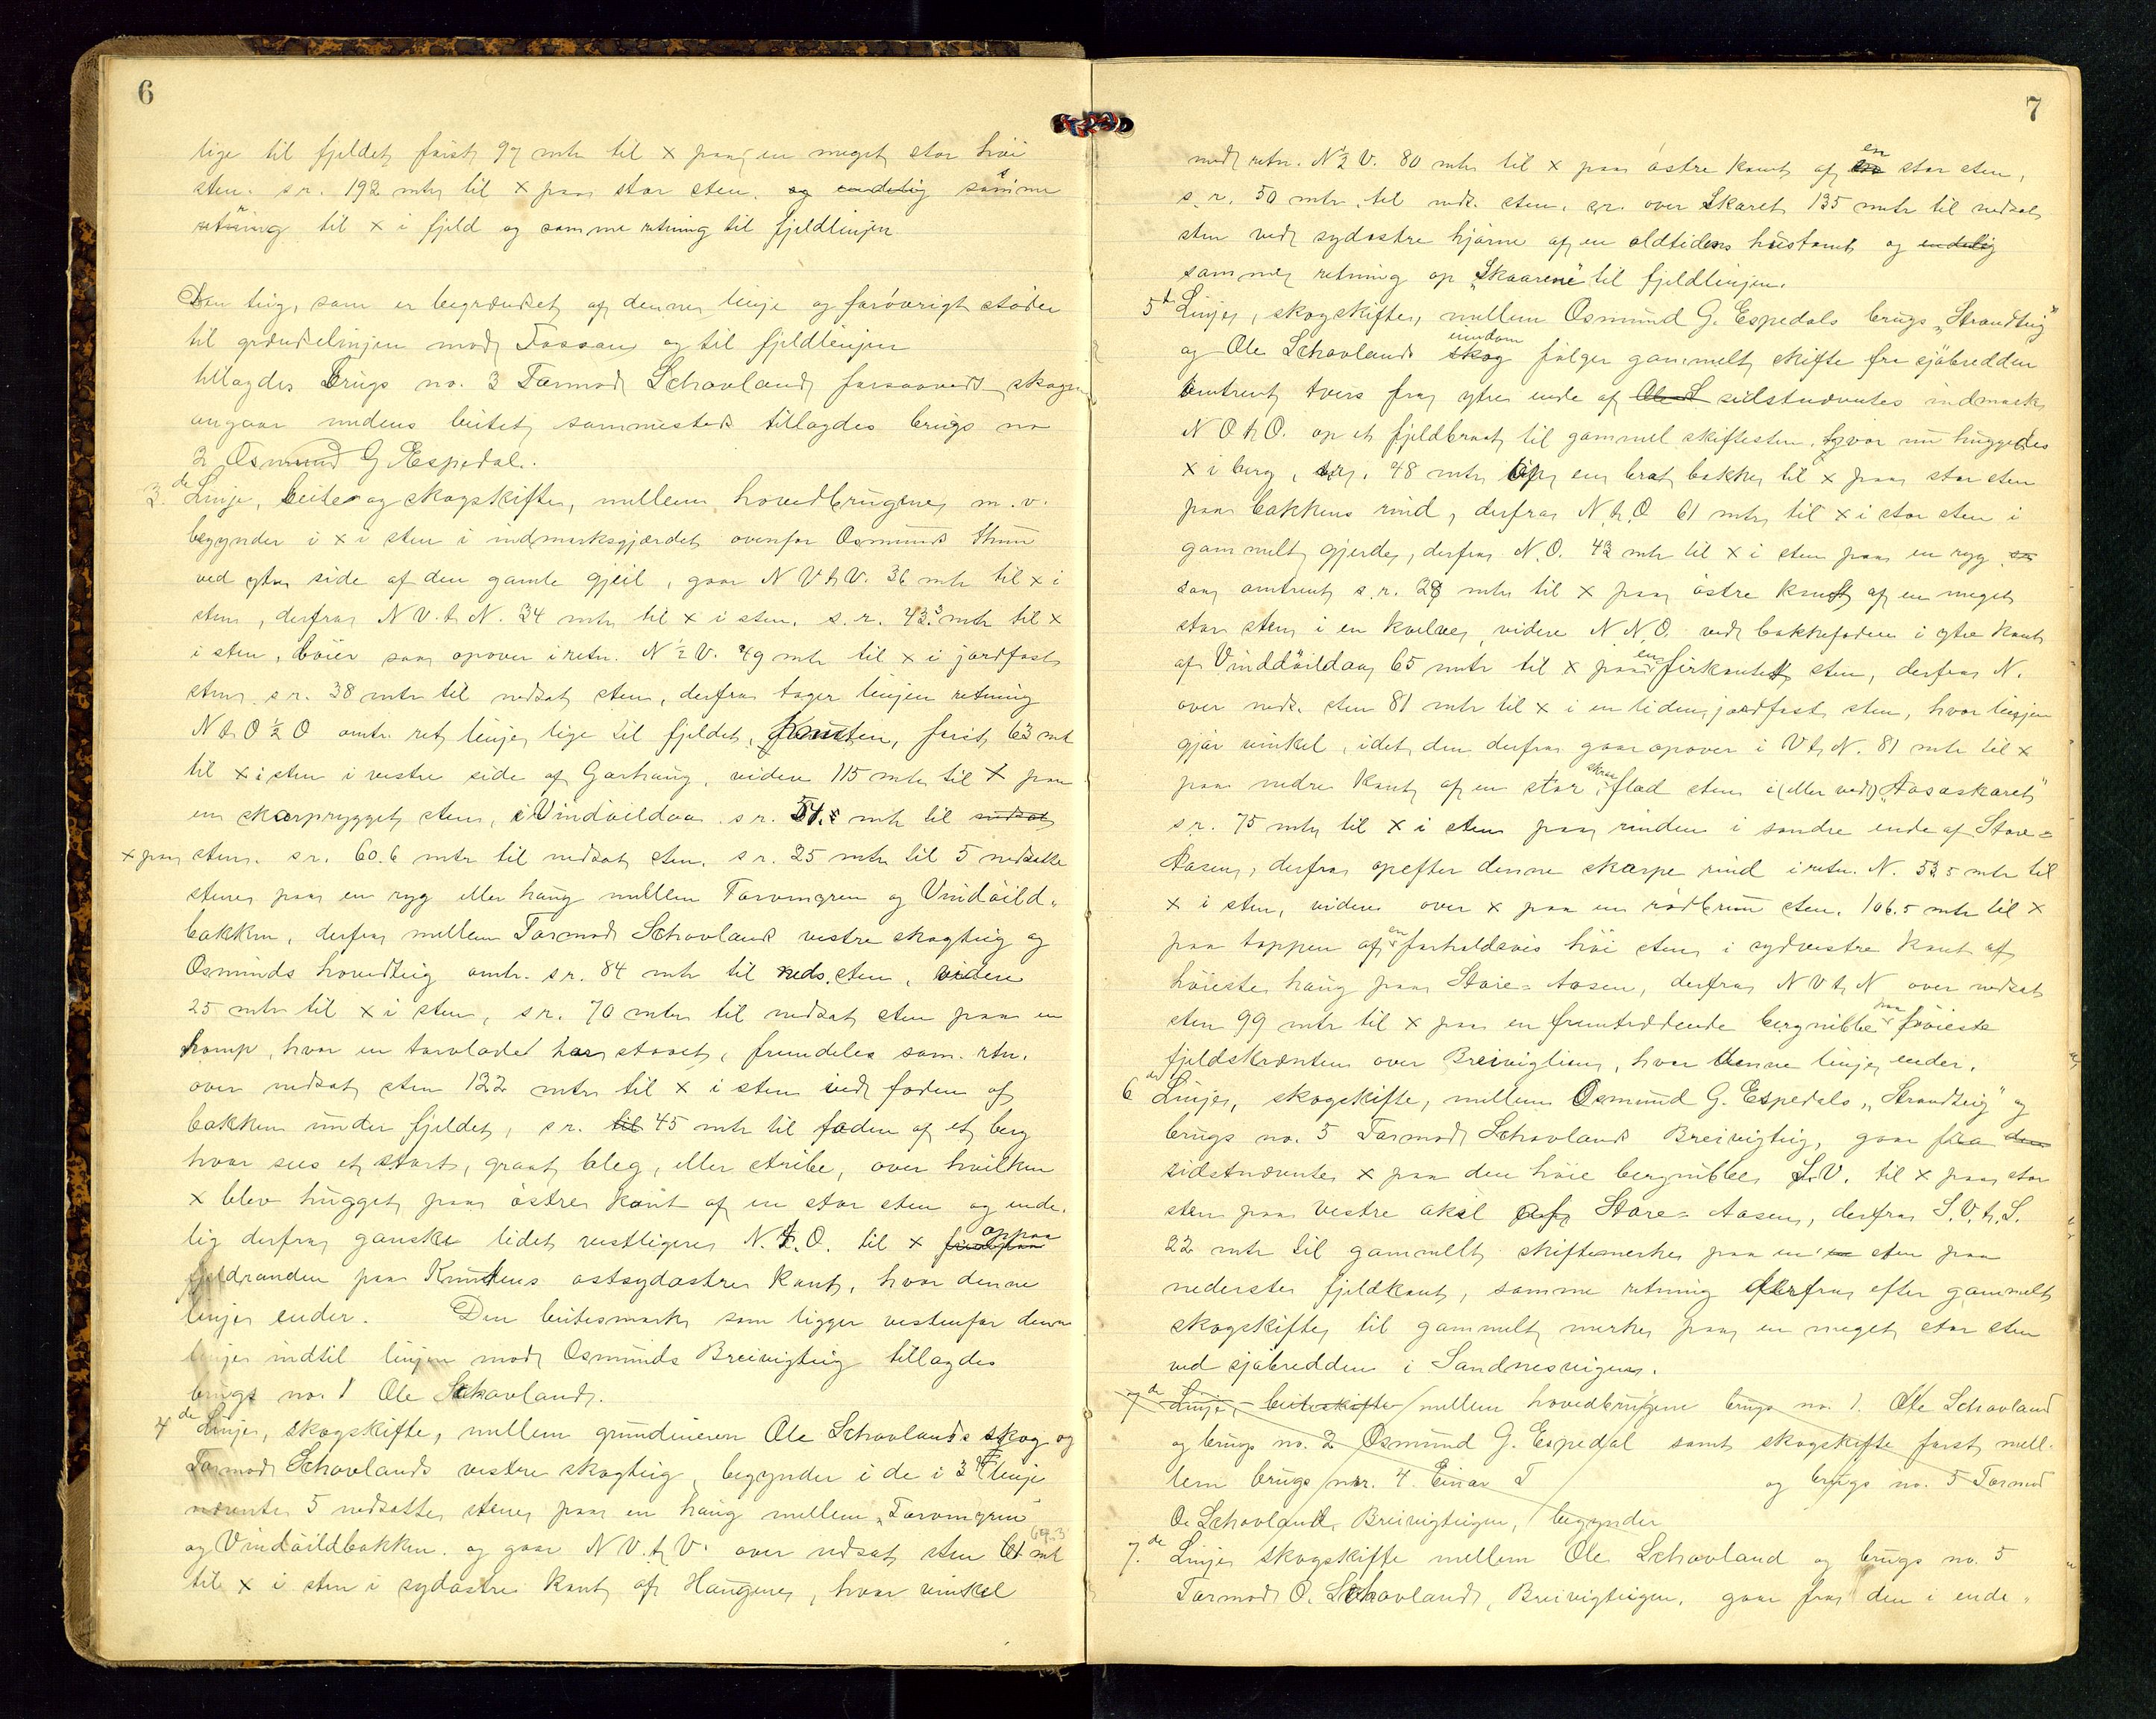 6
lige til fjeldet først 97 mtr til x paa en meget stor høi
sten. s r. 192 mtr til x paa stor sten. og endelig samme
retning til x i fjeld og samme retning til fjeldlinjen.
Den teig, som er begrændset af denne linje og forøvrigt støder
til grændselinjen mod Fossan og til fjeldlinjen
tillagdes Brugs no. 3 Tormod Schovland forsaavidt skogen
angaar medens beitet sammesteds tillagdes brugs no
2 Osmund G Espedal.
3. de Linje, beite og skogskifte, mellem hovedbrugene m. v.
begynder i x i sten i indmarksgjærdet ovenfor Osmunds
ved ytre side af den gamle gjeil, gaar N V t. V. 36 mtr til x i
sten, derfra N V. t. N. 34 mtr til x i sten. s. r. 43.3 mtr til x
i sten, bøier saa opover i retn. N ½ V. 49 mtr til x i jordfast
sten s r. 38 mtr til nedsat sten, derfra tager linjen retning
N t O ½ O omtr. ret linje lige til fjeldet, Knuten, først 63 mtr
til x i sten i vestre side af Garhaug, videre 115 mtr til x paa
en skarprygget sten, i Vindøildaa s r. 54.5 mtr til nedsat
x paa sten. s r. 60.6 mtr til nedsat sten. s r. 25 mtr til 5 nedsatte
stener paa en ryg eller haug mellem Torvmyren og Vindøild-
bakken, derfra mellem Tormod Schovlands vestre skogteig og
Osmunds hovedteig omtr. s r. 84 mtr til neds. sten, videre
25 mtr til x i sten, s r. 70 mtr til nedsat sten paa en
homp, hvor en torvladet har staaet, fremdeles sam. rtn.
over nedsat sten 122 mtr til x i sten ved foden af
bakken under fjeldet, s r. til 45 mtr til foden af et berg
hvor sees et stort, graat bleg, eller stribe, over hvilken
x blev hugget paa østre kant af en stor sten og ende-
lig derfra ganske lidet vestligere N. t. O. til x oppaa
fjeldranden paa Knutens ostsydøstre kant, hvor denne
linje ender. Den beitesmark som ligger vestenfor denne
linje indtil linjen mod Osmunds Breivigteig tillagdes
brugs no. 1 Ole Schovland.
4 de Linje, skogskifte, mellem grundeieren Ole Schovlands skog og
Tormod Schovlands vestre skogteig, begynder i de i 3die linje
nævnte 5 nedsatte stener paa en haug mellem "Torvmyren"
og Vindøildbakken. og gaar N V. t. V. over nedsat sten 61. mtr
til x i sten i sydøstre kant af Haugene, hvor vinkel
7
med retn. N ½ V. 80 mtr til x paa østre kant af en stor sten,
s. r. 50 mtr. til neds. sten. s r. over Skaret 135 mtr til nedsat
sten ved sydøstre hjørne af en oldtidens hustomt og endelig
samme retning op "Skaarene" til fjeldlinjen.
5 te Linje, skogskifte, mellem Osmund G. Espedals brugs "Strandteig"
og Ole Schovlands skog eiendom følger gammelt skifte fra sjøbredden
omtrent tvers fra ytre ende af Ole S sidstnævntes indmark
N O t O. op et fjeldbrat til gammel skiftesten, hvor nu huggedes
x i berg, s r. 48 mtr op en brat bakke til x paa stor sten
paa bakkens rind, derfra N t. O 61 mtr til x i stor sten i
gammelt gjerde, derfra N. O. 43 mtr til x i sten paa en ryg sa
saa omtrent s. r. 28 mtr til x paa østre kant af en meget
stor sten i en kvelve, videre N N O. ved bakkefoden i ytre kant
af Vinddøildaa 65 mtr til x paa en firkantet sten, derfra N.
over neds. sten 81 mtr til x i en liden jordfast sten, hvor linjen
gjør vinkel, idet den derfra gaar opover i V t. N. 81 mtr til x
paa nedre kant af en stor skraa flad sten i (eller ved) "Aasaskaret"
s r. 75 mtr til x i sten paa rinden i søndre ende af Store-
Aasen, derfra opefter denne skarpe rind i retn. N. 53.5 mtr til
x i sten, videre over x paa en rødbrun sten. 106.5 mtr til x
paa toppen af en forholdsvis høi sten i sydvestre kant af
høieste haug paa Store-Aasen, derfra N V t. N over nedsat
sten 99 mtr til x paa en fremtrædende bergnibbe paa høieste
fjeldskrænten over Breiviglien, hvor denne linje ender.
6 te Linje, skogskifte, mellem Osmund G. Espedals "Strandteig" og
brugs no. 5 Tormod Schovlands Breivigteig, gaar fra den
sidstnævnte x paa den høie bergnibbe S.V. til x paa stor
sten paa vestre aksel af Store-Aasen, derfra S.V. t. S.
22 mtr til gammelt skiftemerke paa en sten paa
nederste fjeldkant, samme retning derfra efter gammelt
skogskifte til gammelt merke paa en meget stor sten
ved sjøbredden i Sandnesvigen.
7 de Linje, beiteskifte mellem hovedbrugene brugs no. 1. Ole Schovland
og brugs no. 2 Osmund G. Espedal samt skogskifte først mell-
lem brugs nr. 4. Einar T og brugs no. 5 Tormod
O. Schovland, Breivigteigen, begynder
7. de Linje skogskifte mellem Ole Schovland og brugs no. 5
Tormod O. Schovland, Breivigteigen, gaar fra den i ende-